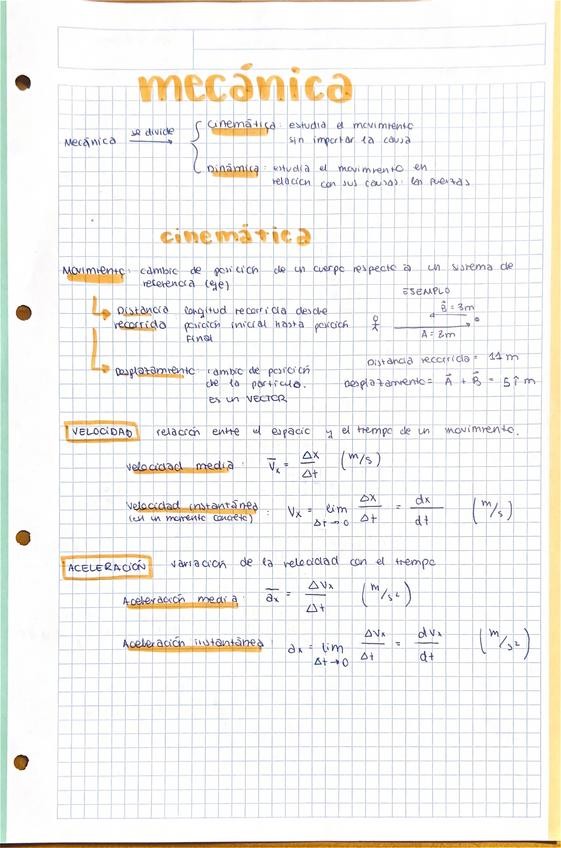 mecánica
Mecánica se divide
Cinemática: estudia el movimiento
sin importar la causa
Dinámica: estudia el movimiento en
relación con sus causas: las fuerzas
cinemática
Movimiento: cambio de posición de un cuerpo respecto a un sistema de
referencia (eje)
EJEMPLO
B⃗ = 3m
A = 8m
Distancia longitud recorrida desde
recorrida posición inicial hasta posición
Final
Distancia recorrida = 11 m
Desplazamiento: cambio de posición
de la partícula.
ES UN VECTOR
Desplazamiento = A⃗ + B⃗ = 5 î m
VELOCIDAD relación entre el espacio y el tiempo de un movimiento.
Velocidad media: V̅ₓ = Δx/Δt (m/s)
Velocidad instantánea: Vx = lim Δt→0 Δx/Δt = dx/dt (m/s)
(en un momento concreto)
ACELERACIÓN variación de la velocidad con el tiempo
Aceleración media: a̅x = ΔVx/Δt (m/s²)
Aceleración instantánea: ax = lim Δt→0 ΔVx/Δt = dVx/dt (m/s²)